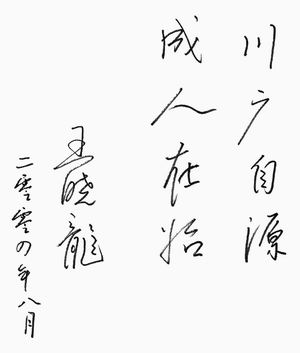 川广自源
成人在始
王晓龙
二零零四年八月